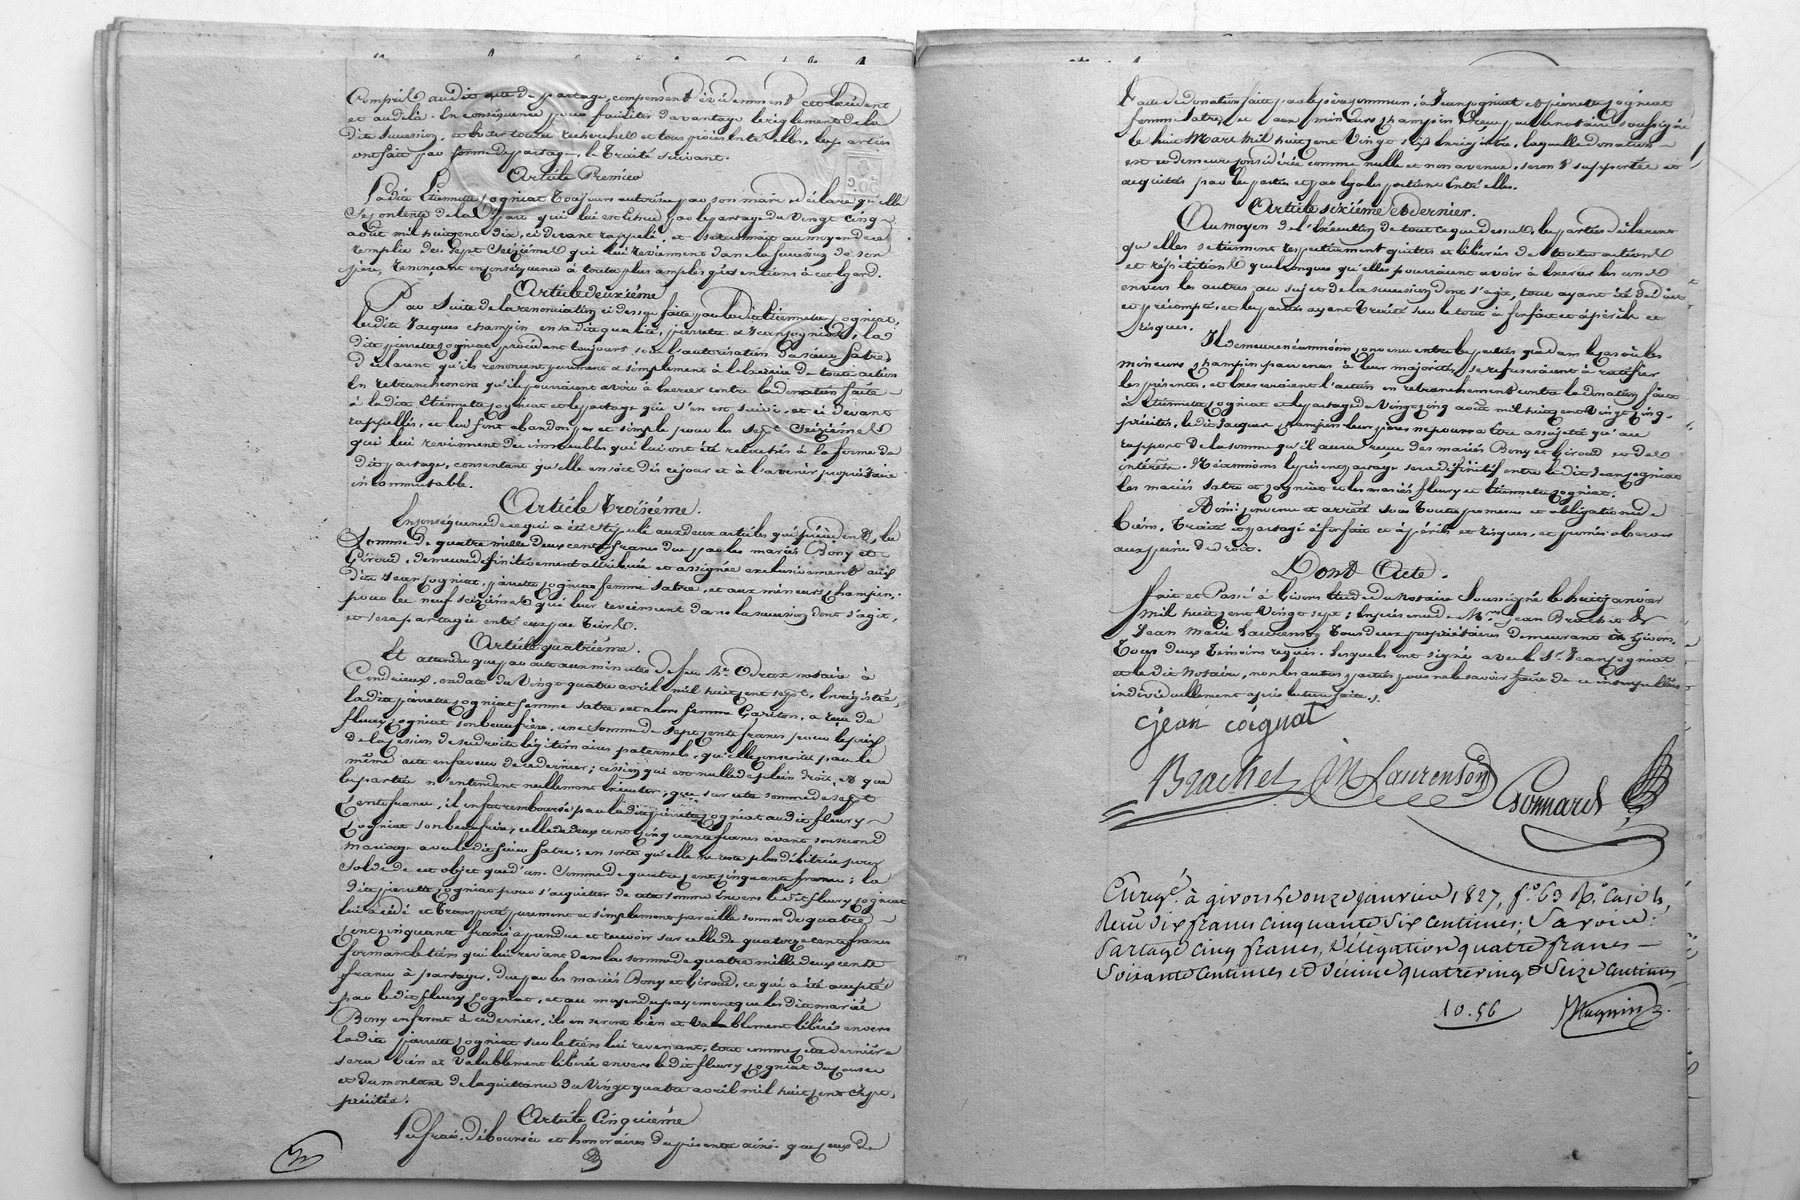 Compris audit acte de partage, compensent évidemment cet excédent
et audelà. En conséquence pour faciliter davantage le règlement de la
dite succession, et éviter toutes recherches et tous procès entr'elles, les parties
ont fait par forme de partage, le Traité suivant.
Article Premier
Ladite Etiennette Cogniat toujours autorisée par son mari déclare qu'elle
se contente de la part qui lui est échue par le partage du vingt cinq
août mil huit cent dix, ci devant rappelé, et se reconnait au moyen de ce
remplie des sept seizièmes qui lui reviennent dans la succession de son
père, renonçant en conséquence à toutes plus amples prétentions à cet égard.
Article deuxième
Par suite de la renonciation ci dessus faite par ladite Etiennette Cogniat,
ledit Jacques Champin en sadite qualité, pierrette et Jean Cogniat, la
dite pierrette Cogniat procédant toujours sous l'autorisation dudit sieur Satre,
déclarent qu'ils renoncent purement et simplement à l'exercice de toute action
en retranchement qu'ils pourraient avoir à exercer contre la donation faite
à ladite Etiennette Cogniat et le partage qui s'en est suivi, et ci devant
rappellés, et lui font abandon pur et simple pour les sept seizièmes
qui lui reviennent des immeubles qui lui ont été relachés à la forme du
dit partage, consentant qu'elle en soit dès ce jour et à l'avenir propriétaire
incommutable.
Article Troisième.
En conséquence de ce qui a été stipulé aux deux articles qui précèdent, la
somme de quatre mille deux cents francs due par les mariés Bony et
Giroud, demeure définitivement attribuée et assignée exclusivement aux
dits Jean Cogniat, pierrette Cogniat femme Satre, et aux mineurs Champin,
pour les neuf seizièmes qui leur reviennent dans la succession dont s'agit,
et sera partagée entr'eux par tiers.
Article quatrième.
Et attendu que par acte aux minutes de feu Me Odrax notaire à
Condrieux, en date du vingt quatre avril mil huit cent sept, enregistré,
ladite pierrette Cogniat femme Satre, et alors femme Gariton, a reçu de
fleury Cogniat son beaufrère, une somme de sept cents francs pour le prix
de la cession de ses droits légitimaires paternels, qu'elle consentit par le
même acte en faveur de ce dernier; cession qui est nulle de plein droit, et que
les parties n'entendent nullement exécuter, que sur cette somme de sept
cents francs, il en fut remboursé par ladite pierrette Cogniat audit fleury
Cogniat son beaufrère, celle de deux cent cinquante francs avant son second
mariage avec ledit sieur Satre; en sorte qu'elle ne reste plus débitrice pour
solde de cet objet que d'une somme de quatre cent cinquante francs; la
dite pierrette Cogniat pour s'acquitter de cette somme envers ledit fleury Cogniat
lui a cédé et transporté purement et simplement pareille somme de quatre
cent cinquante francs à prendre et recevoir sur celle de quatorze cents francs
formant le tiers qui lui revient dans la somme de quatre mille deux cents
francs à partager, due par les mariés Bony et Giroud, ce qui a été accepté
par ledit fleury Cogniat, et au moyen du payement que lesdits mariés
Bony en feront à ce dernier, ils en seront bien et valablement libérés envers
ladite pierrette Cogniat sur le tiers lui revenant, tout comme cette dernière
sera bien et valablement libérée envers ledit fleury Cogniat du
et du montant de la quittance du vingt quatre avril mil huit cent sept,
précitée.
Article Cinquième
Les frais, déboursés et honoraires des présentes ainsi que ceux de
l'acte de donation fait par le père commun, à Jean Cogniat et pierrette Cogniat
femme Satre, et aux mineurs Champin reçu par le notaire soussigné
le huit Mars mil huit cent Vingt six enregistré, laquelle donation
est et demeure considérée comme nulle et non avenue, seront supportés et
acquittés par les parties et par égales portions entr'elles.
Article sixième et dernier.
Au moyen de l'exécution de tout ce que dessus, les parties déclarent
qu'elles se tiennent respectivement quittes et libérées de toutes actions
et répétitions quelconques qu'elles pourraient avoir à exercer les unes
envers les autres au sujet de la succession dont s'agit, tout ayant été déduit
et précompté, et les parties ayant traité sur le tout à forfait et à périls et
risques.
Il demeure néanmoins convenu entre les parties que dans le cas où les
mineurs Champin parvenus à leur majorité, se refuseraient à ratifier
les présentes, et exerceraient l'action en retranchement contre la donation faite
à Etiennette Cogniat et le partage du vingt cinq août mil huit cent vingt cinq,
précités, ledit Jacques Champin leur père ne pourra être assujetti qu'au
rapport de la somme qu'il aura reçue des mariés Bony et Giroud et des
intérêts. Néanmoins le présent partage sera définitif entre ledit Jean Cogniat
les mariés Satre et Cogniat et les mariés fleury et Etiennette Cogniat.
Ainsi convenu et arrêté sous toutes promesses et obligations de
biens, Traité et partagé à forfait et à périls et risques, et promis observer
aux peines de droit.
Dont Acte.
Fait et Passé à Givors Etude du Notaire Soussigné le huit janvier
mil huit cent vingt sept; En présence de Mrs Jean Brachet et
Jean Marie Laurenson tous deux propriétaires demeurant à Givors,
tous deux témoins requis, lesquels ont signé avec le Sr Jean Cogniat
et ledit Notaire, non les autres parties pour ne le savoir faire de ce interpellées
individuellement après lecture faite./.
jean cognat
Brachet JM Laurenson Gonnard
Enregé à givors le onze janvier 1827, fo 63 Ro Case 4,
Reçu dix francs cinquante Six Centimes; Savoir:
Partage cinq francs, Délégation quatre francs
Soixante Centimes et Dixième quatrevingt Seize Centimes
10.56